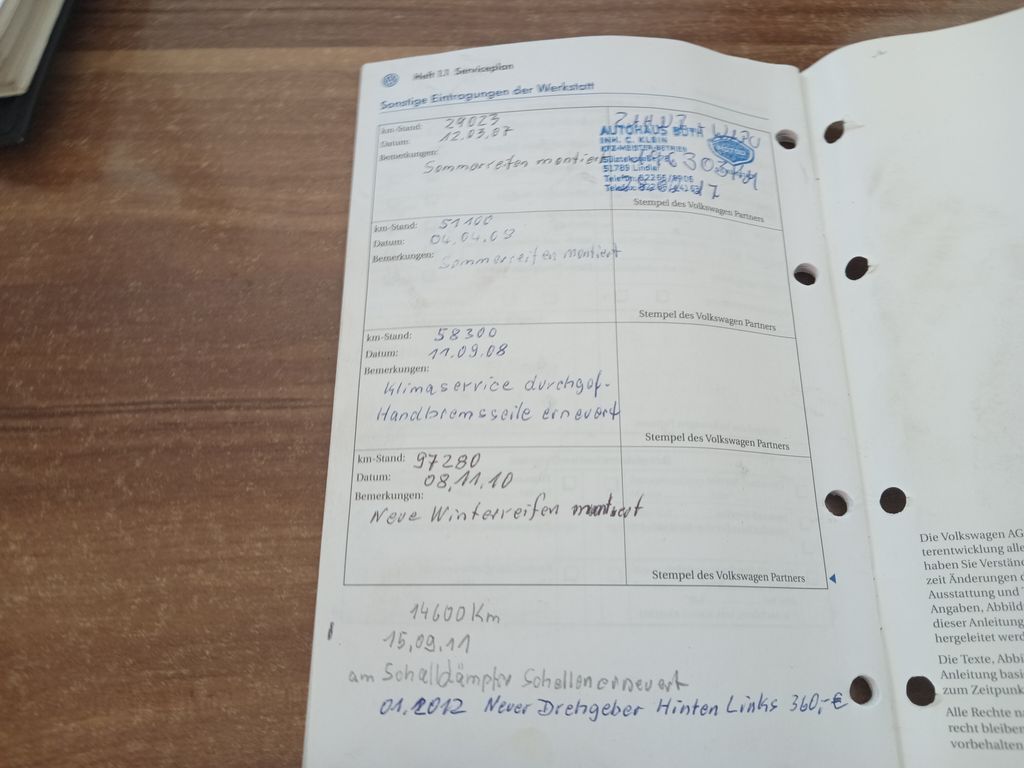 Heft 1.1 Serviceplan
Sonstige Eintragungen der Werkstatt
km-Stand: 29023
Datum: 12.03.07
Bemerkungen:
Sommerreifen montiert
AUTOHAUS BÜTH
INH. C. KLEIN
KFZ-MEISTER-BETRIEB
51789 Lindlar
Stempel des Volkswagen Partners
km-Stand: 51100
Datum: 04.04.08
Bemerkungen: Sommerreifen montiert
Stempel des Volkswagen Partners
km-Stand: 58300
Datum: 11.09.08
Bemerkungen:
Klimaservice durchgef.
Handbremsseile erneuert
Stempel des Volkswagen Partners
km-Stand: 97280
Datum: 08.11.10
Bemerkungen:
Neue Winterreifen montiert
Stempel des Volkswagen Partners
14600 Km
15.09.11
am Schalldämpfer Schellen erneuert
01.2012 Neuer Drehgeber Hinten Links 360,-€
Die Volkswagen AG
terentwicklung alle
haben Sie Verständ
zeit Änderungen
Ausstattung und
Angaben, Abbild
dieser Anleitung
hergeleitet werd
Die Texte, Abbi
Anleitung basi
zum Zeitpunk
Alle Rechte
recht bleiben
vorbehalten